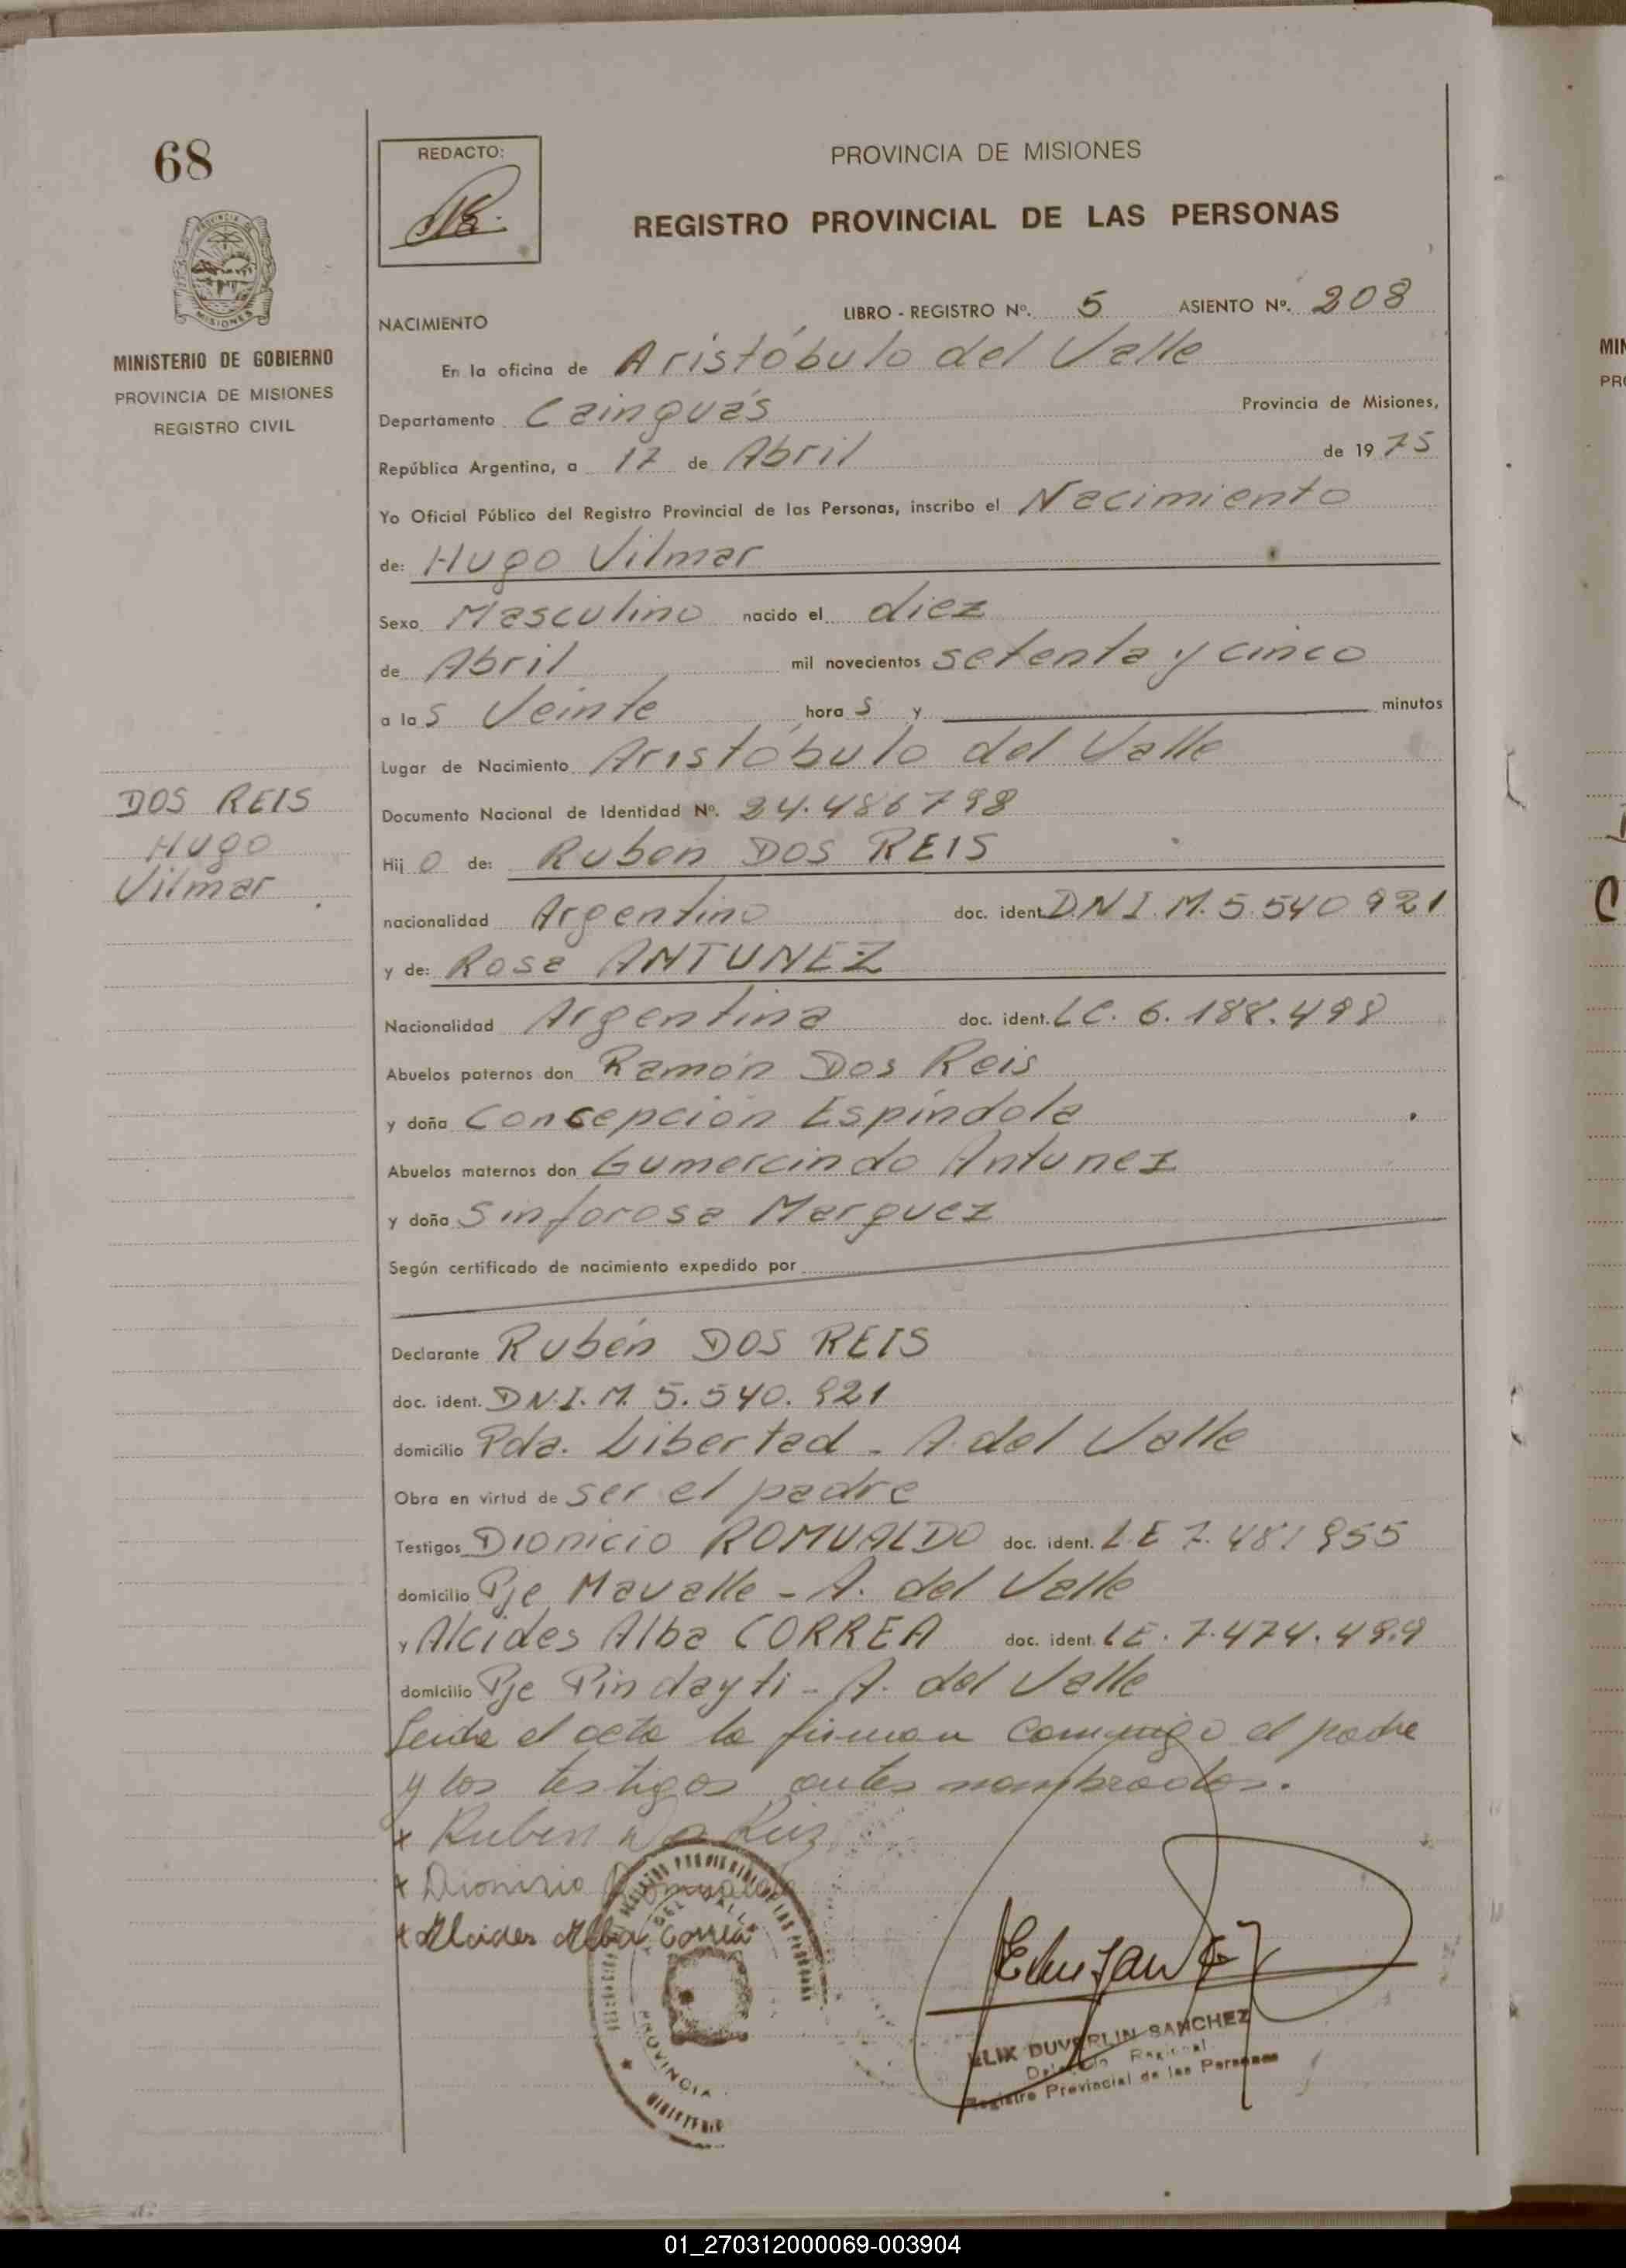 68
REDACTO:
PROVINCIA DE MISIONES
REGISTRO PROVINCIAL DE LAS PERSONAS
MISIONES
MINISTERIO DE GOBIERNO
PROVINCIA DE MISIONES
REGISTRO CIVIL
NACIMIENTO
LIBRO - REGISTRO Nº. 5 ASIENTO Nº. 208
En la oficina de Aristóbulo del Valle
Departamento Cainguás Provincia de Misiones,
República Argentina, a 17 de Abril de 1975
Yo Oficial Público del Registro Provincial de las Personas, inscribo el Nacimiento
de: Hugo Vilmar
Sexo Masculino nacido el diez
de Abril mil novecientos setenta y cinco
a las Veinte horas y minutos
Lugar de Nacimiento Aristóbulo del Valle
DOS REIS
Hugo
Vilmar
Documento Nacional de Identidad Nº. 24.486798
Hijo de: Ruben DOS REIS
nacionalidad Argentino doc. ident. D.N.I.M. 5.540 921
y de: Rosa ANTUNEZ
Nacionalidad Argentina doc. ident. LC. 6.188.498
Abuelos paternos don Ramón Dos Reis
y doña Concepción Espíndola
Abuelos maternos don Gumercindo Antunez
y doña Sinforosa Marquez
Según certificado de nacimiento expedido por
Declarante Rubén DOS REIS
doc. ident. D.N.I.M. 5.540.921
domicilio Pda. Libertad - A. del Valle
Obra en virtud de ser el padre
Testigos Dionicio ROMUALDO doc. ident. L.E 7.481955
domicilio Pje Mavalle - A. del Valle
y Alcides Alba CORREA doc. ident. LE. 7.474.499
domicilio Pje Pindayti - A. del Valle
Leida el acta la firman conmigo el padre
y los testigos antes nombrados.
x Ruben
x Dionisio Romualdo
x Alcides Alba Correa
ELIX DUVERLIN SANCHEZ
Regional
Registro Provincial de las Personas
PROVINCIA
MINISTERIO
01_270312000069-003904